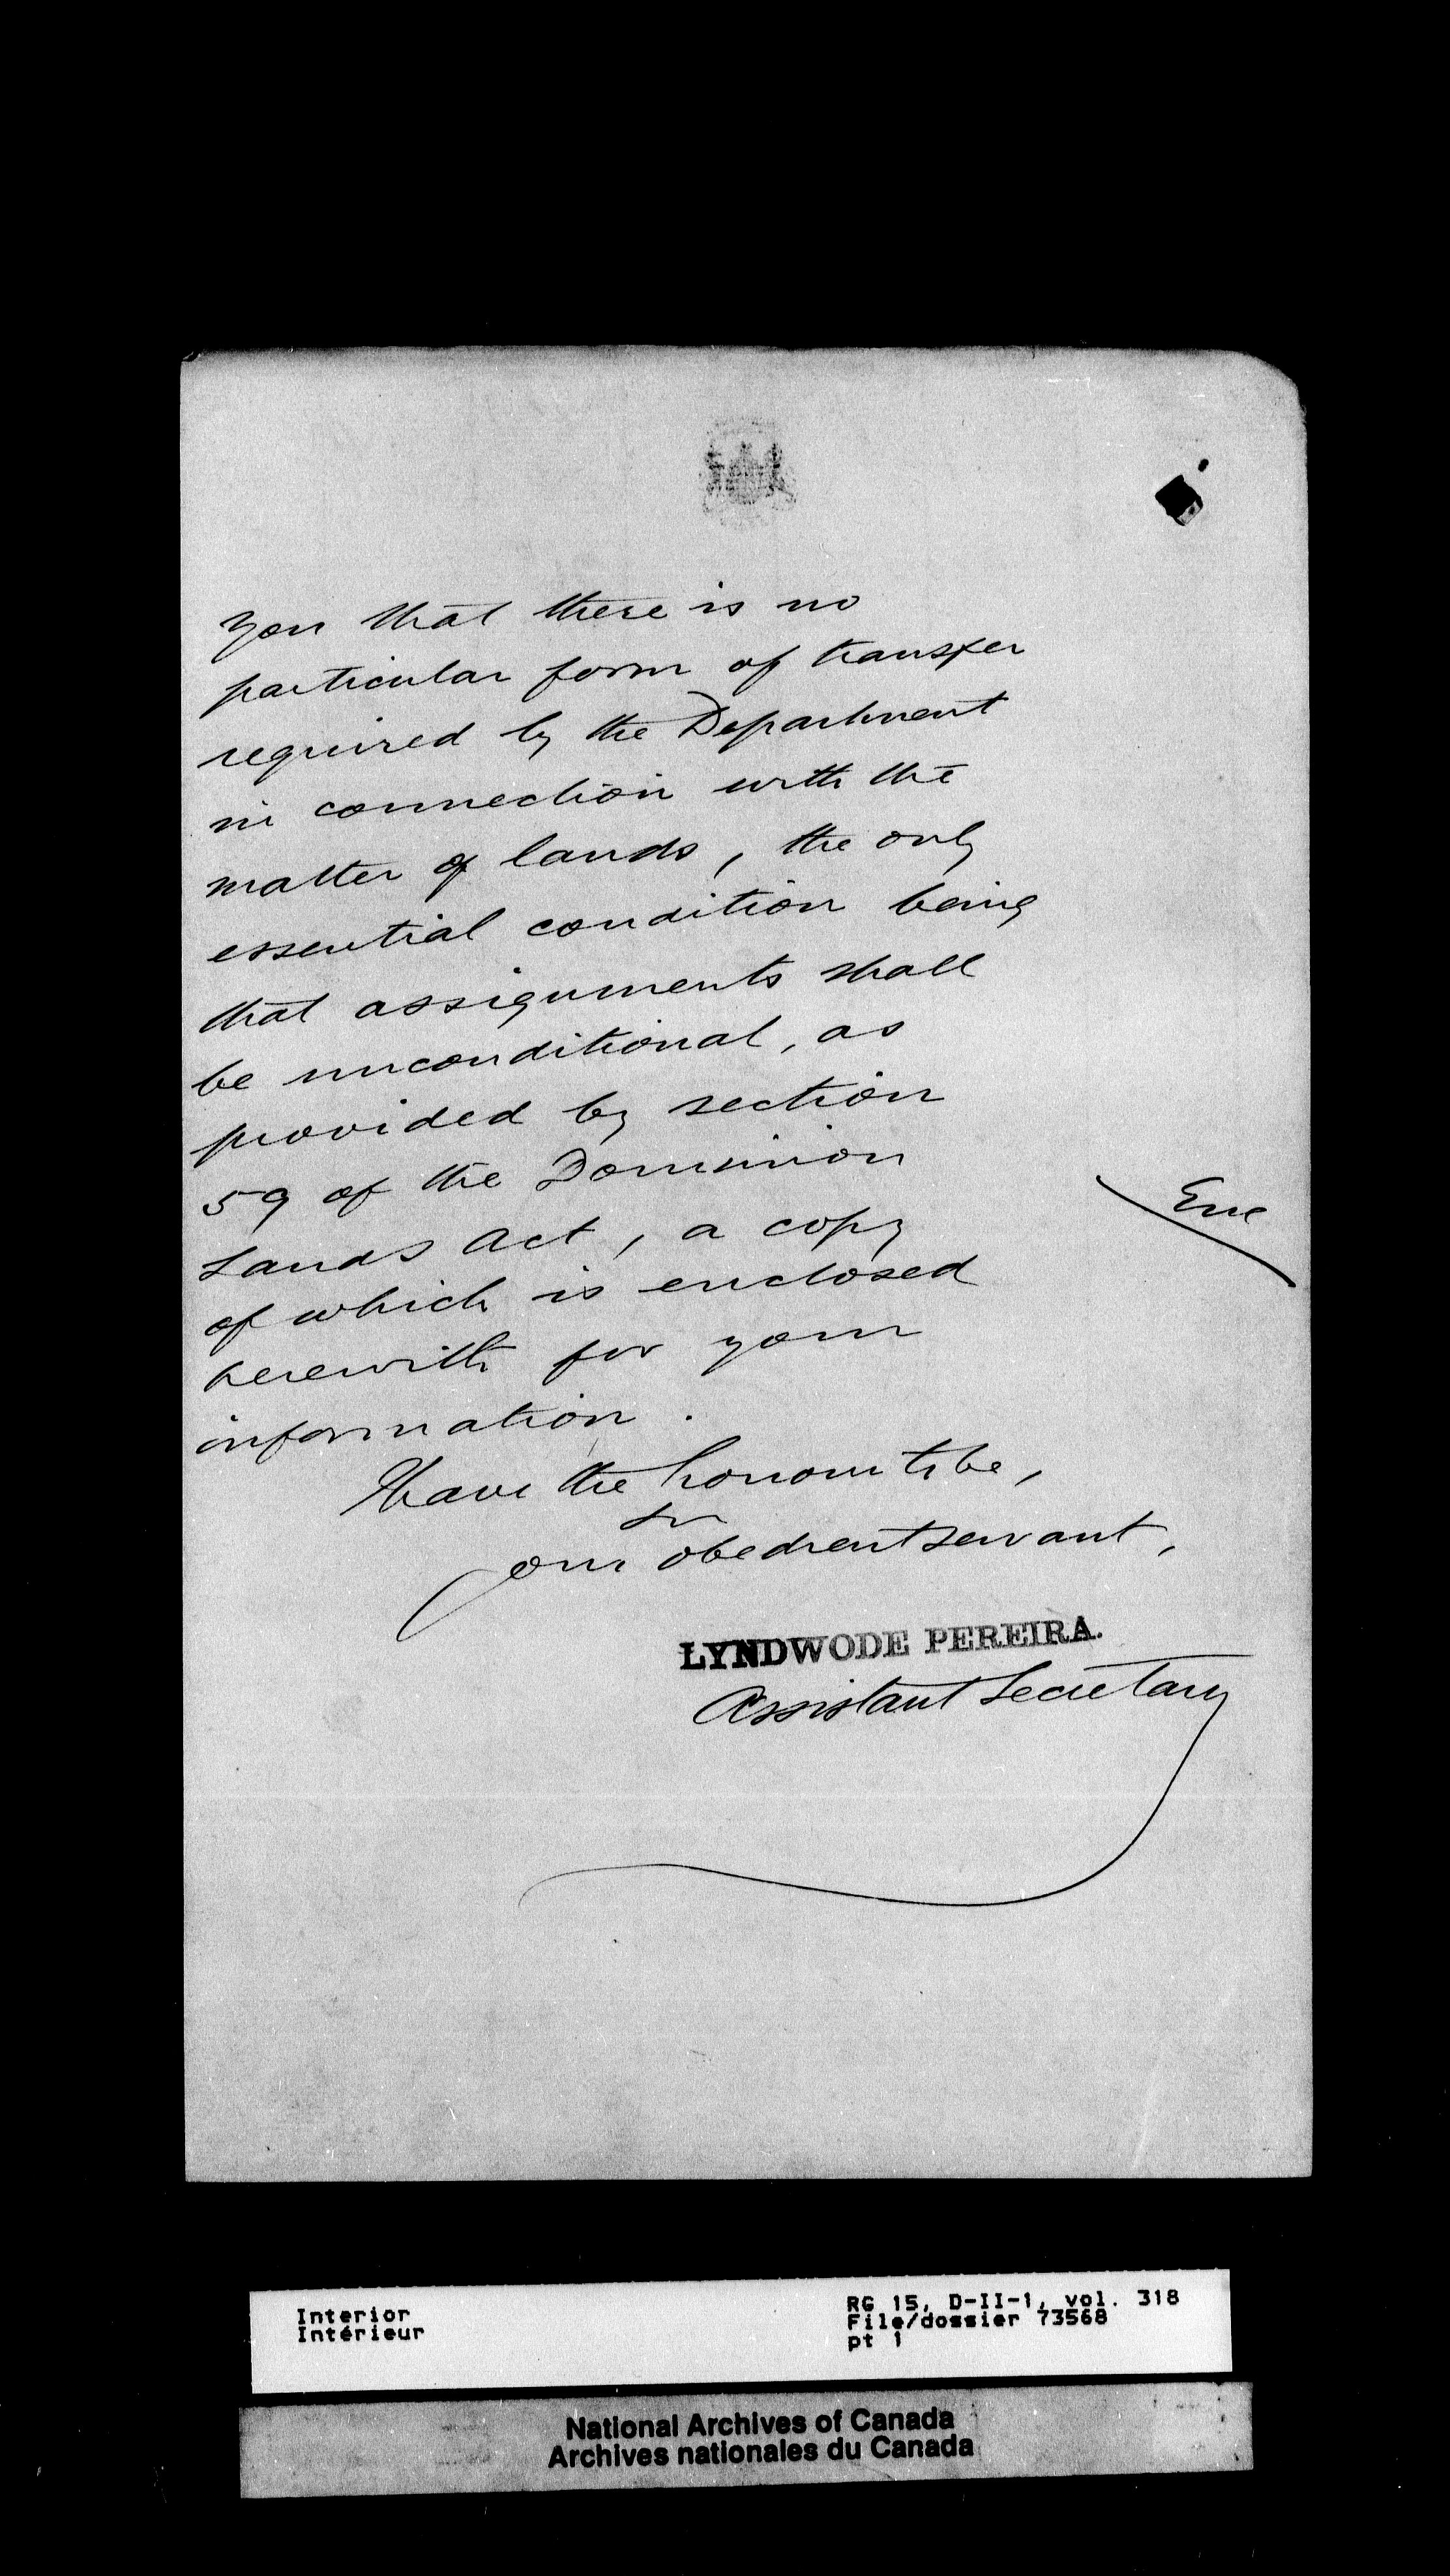 you that there is no
particular form of transfer
required by the Department
in connection with the
matter of lands, the only
essential condition being
that assignments shall
be unconditional, as
provided by section
59 of the Dominion
Lands Act, a copy
Enc
of which is enclosed
herewith for your
information.
I have the honour to be,
Sir
Your obedient servant,
LYNDWODE PEREIRA.
Assistant Secretary
Interior
Intérieur
RG 15, D-II-1, vol. 318
File/dossier 73568
pt 1
National Archives of Canada
Archives nationales du Canada